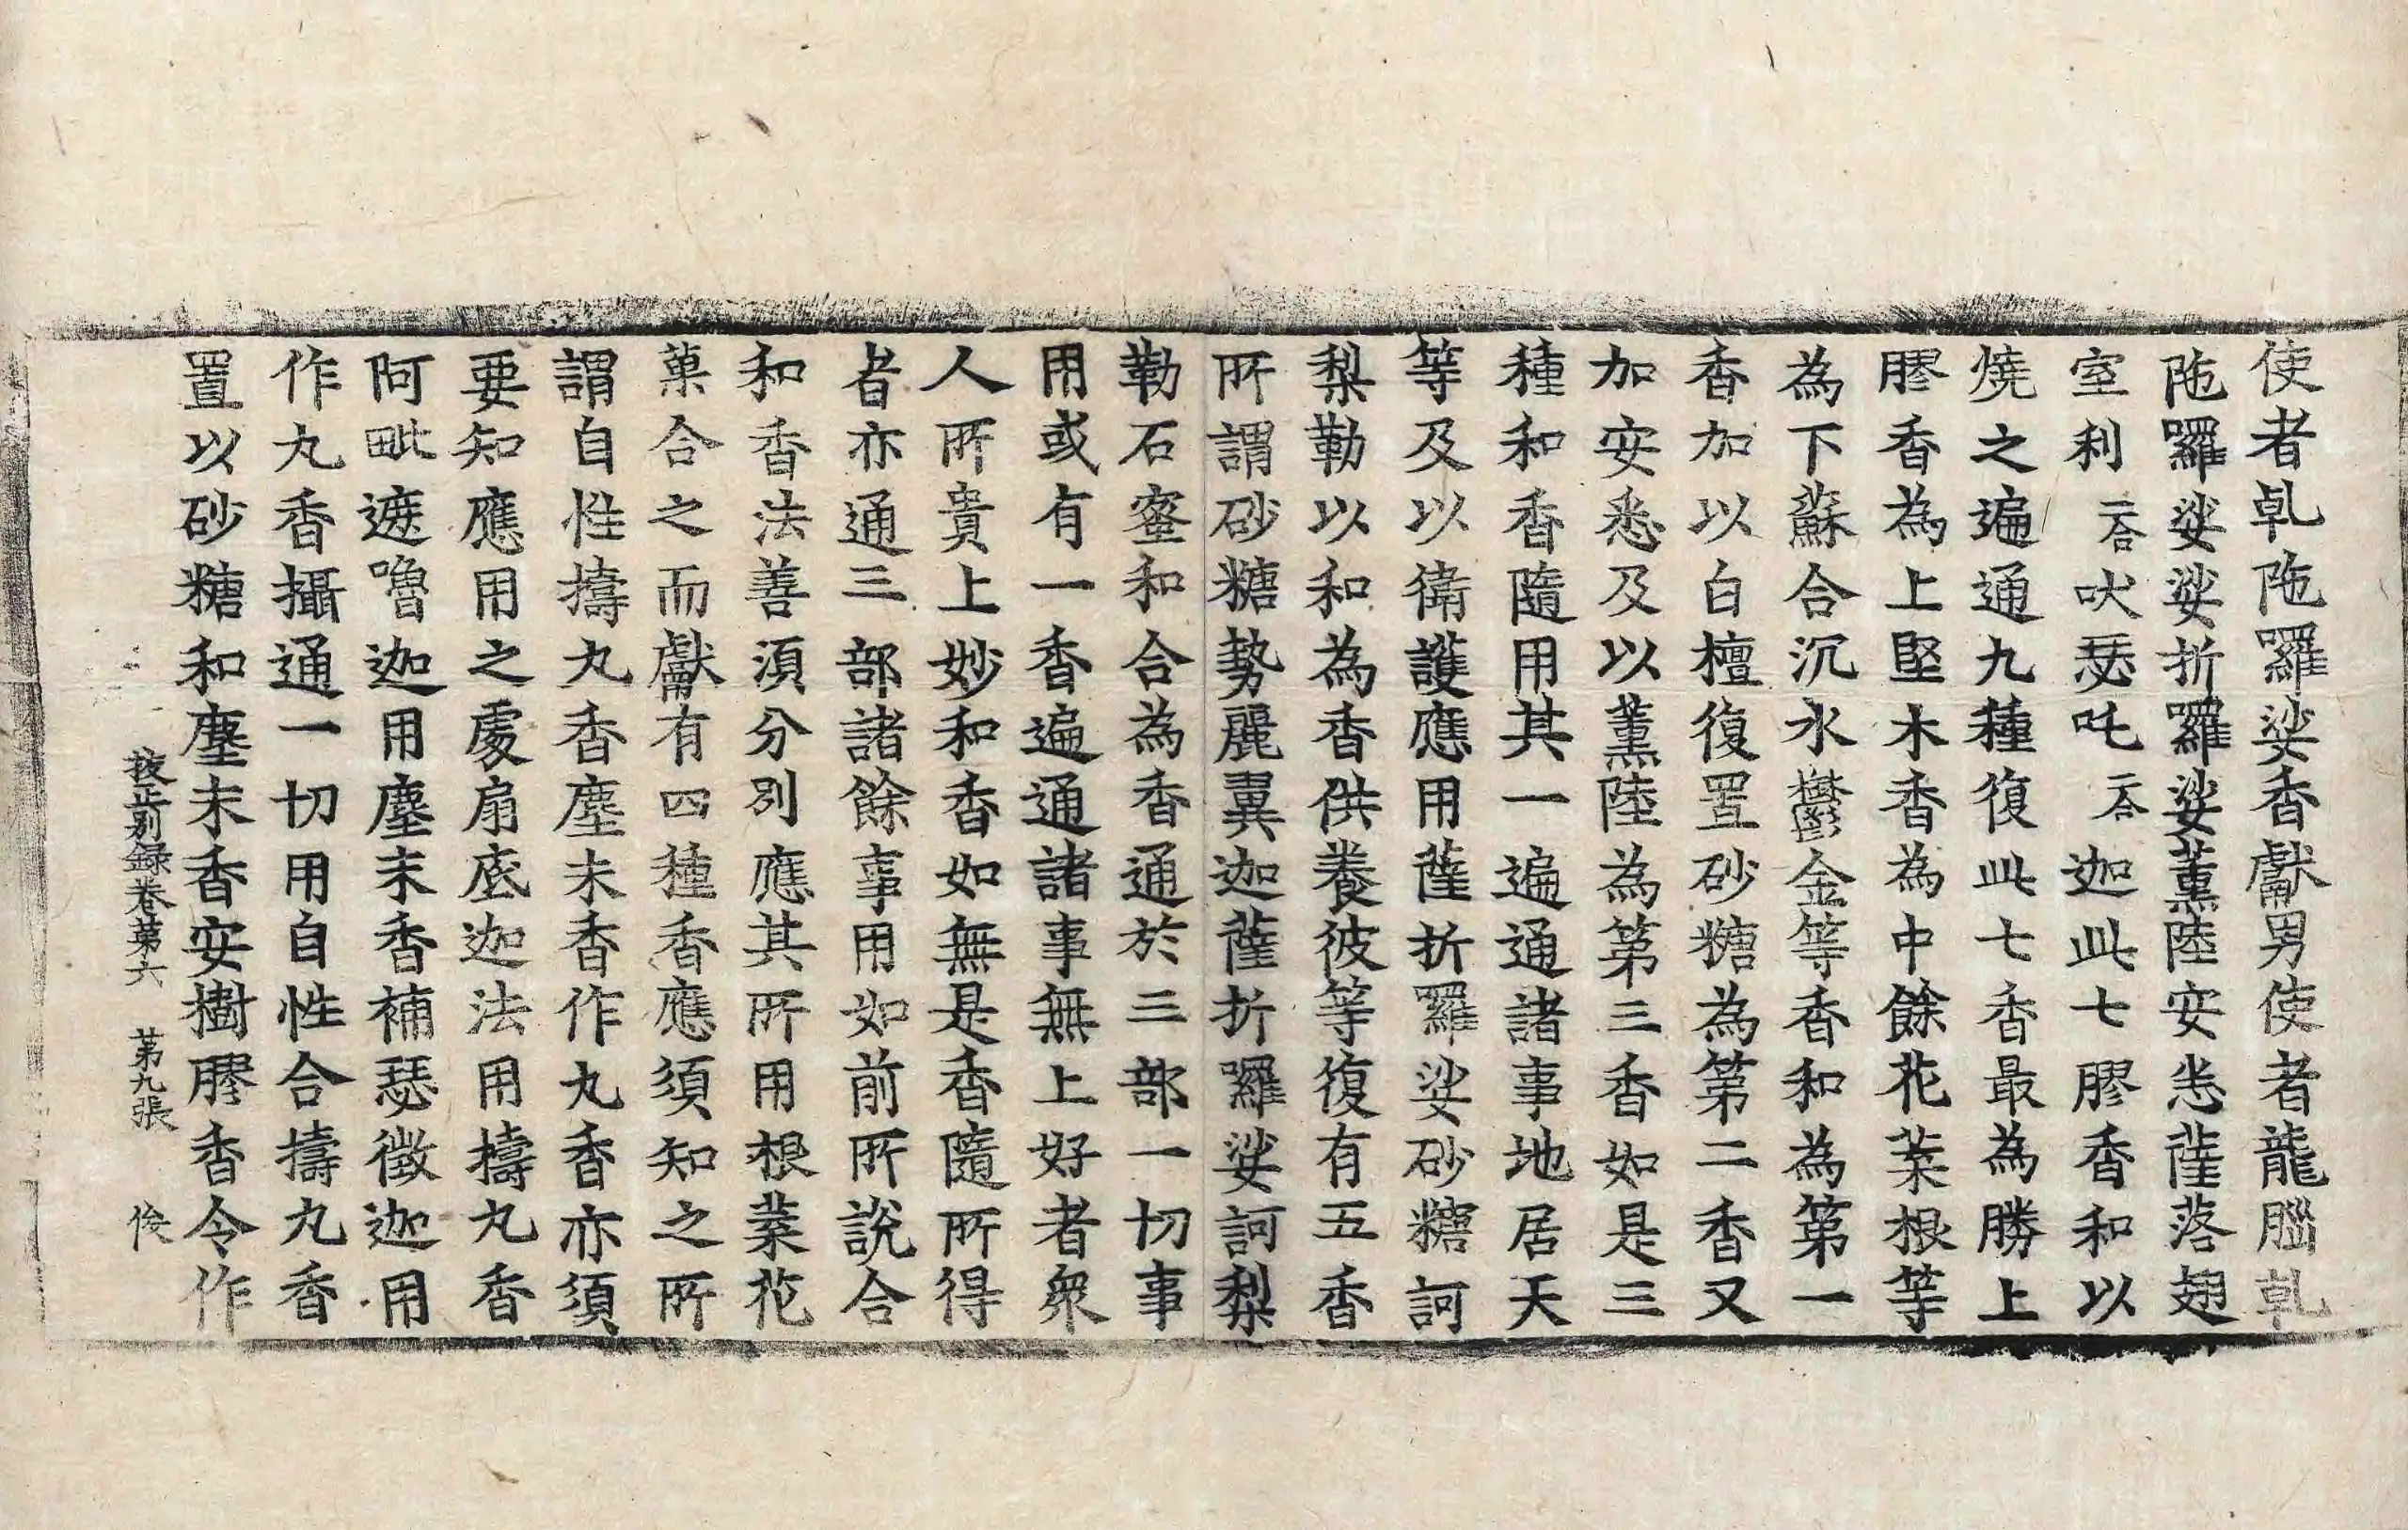 使者乹陁羅娑香獻男使者龍腦乹
陁囉娑娑折囉娑薰陸安悉薩落翅
室利二合吠瑟吒二合迦此七膠香和以
燒之遍通九種復此七香最為勝上
膠香為上堅木香為中餘花葉根等
為下蘇合沉水欝金等香和為第一
香加以白檀復置砂糖為第二香又
加安悉及以薰陸為第三香如是三
種和香隨用其一遍通諸事地居天
等及以衛護應用薩折羅娑砂糖訶
梨勒以和為香供養彼等復有五香
所謂砂糖勢麗翼迦薩折囉娑訶梨
勒石蜜和合為香通於三部一切事
用或有一香遍通諸事無上好者衆
人所貴上妙和香如無是香隨所得
者亦通三部諸餘事用如前所說合
和香法善湏分別應其所用根葉花
菓合之而獻有四種香應須知之所
謂自性擣丸香塵末香作丸香亦須
要知應用之處扇底迦法用擣丸香
阿毗遮嚕迦用塵末香補瑟徵迦用
作丸香攝通一切用自性合擣丸香
置以砂糖和塵末香安樹膠香令作
挍正別録卷苐六 苐九張 俊